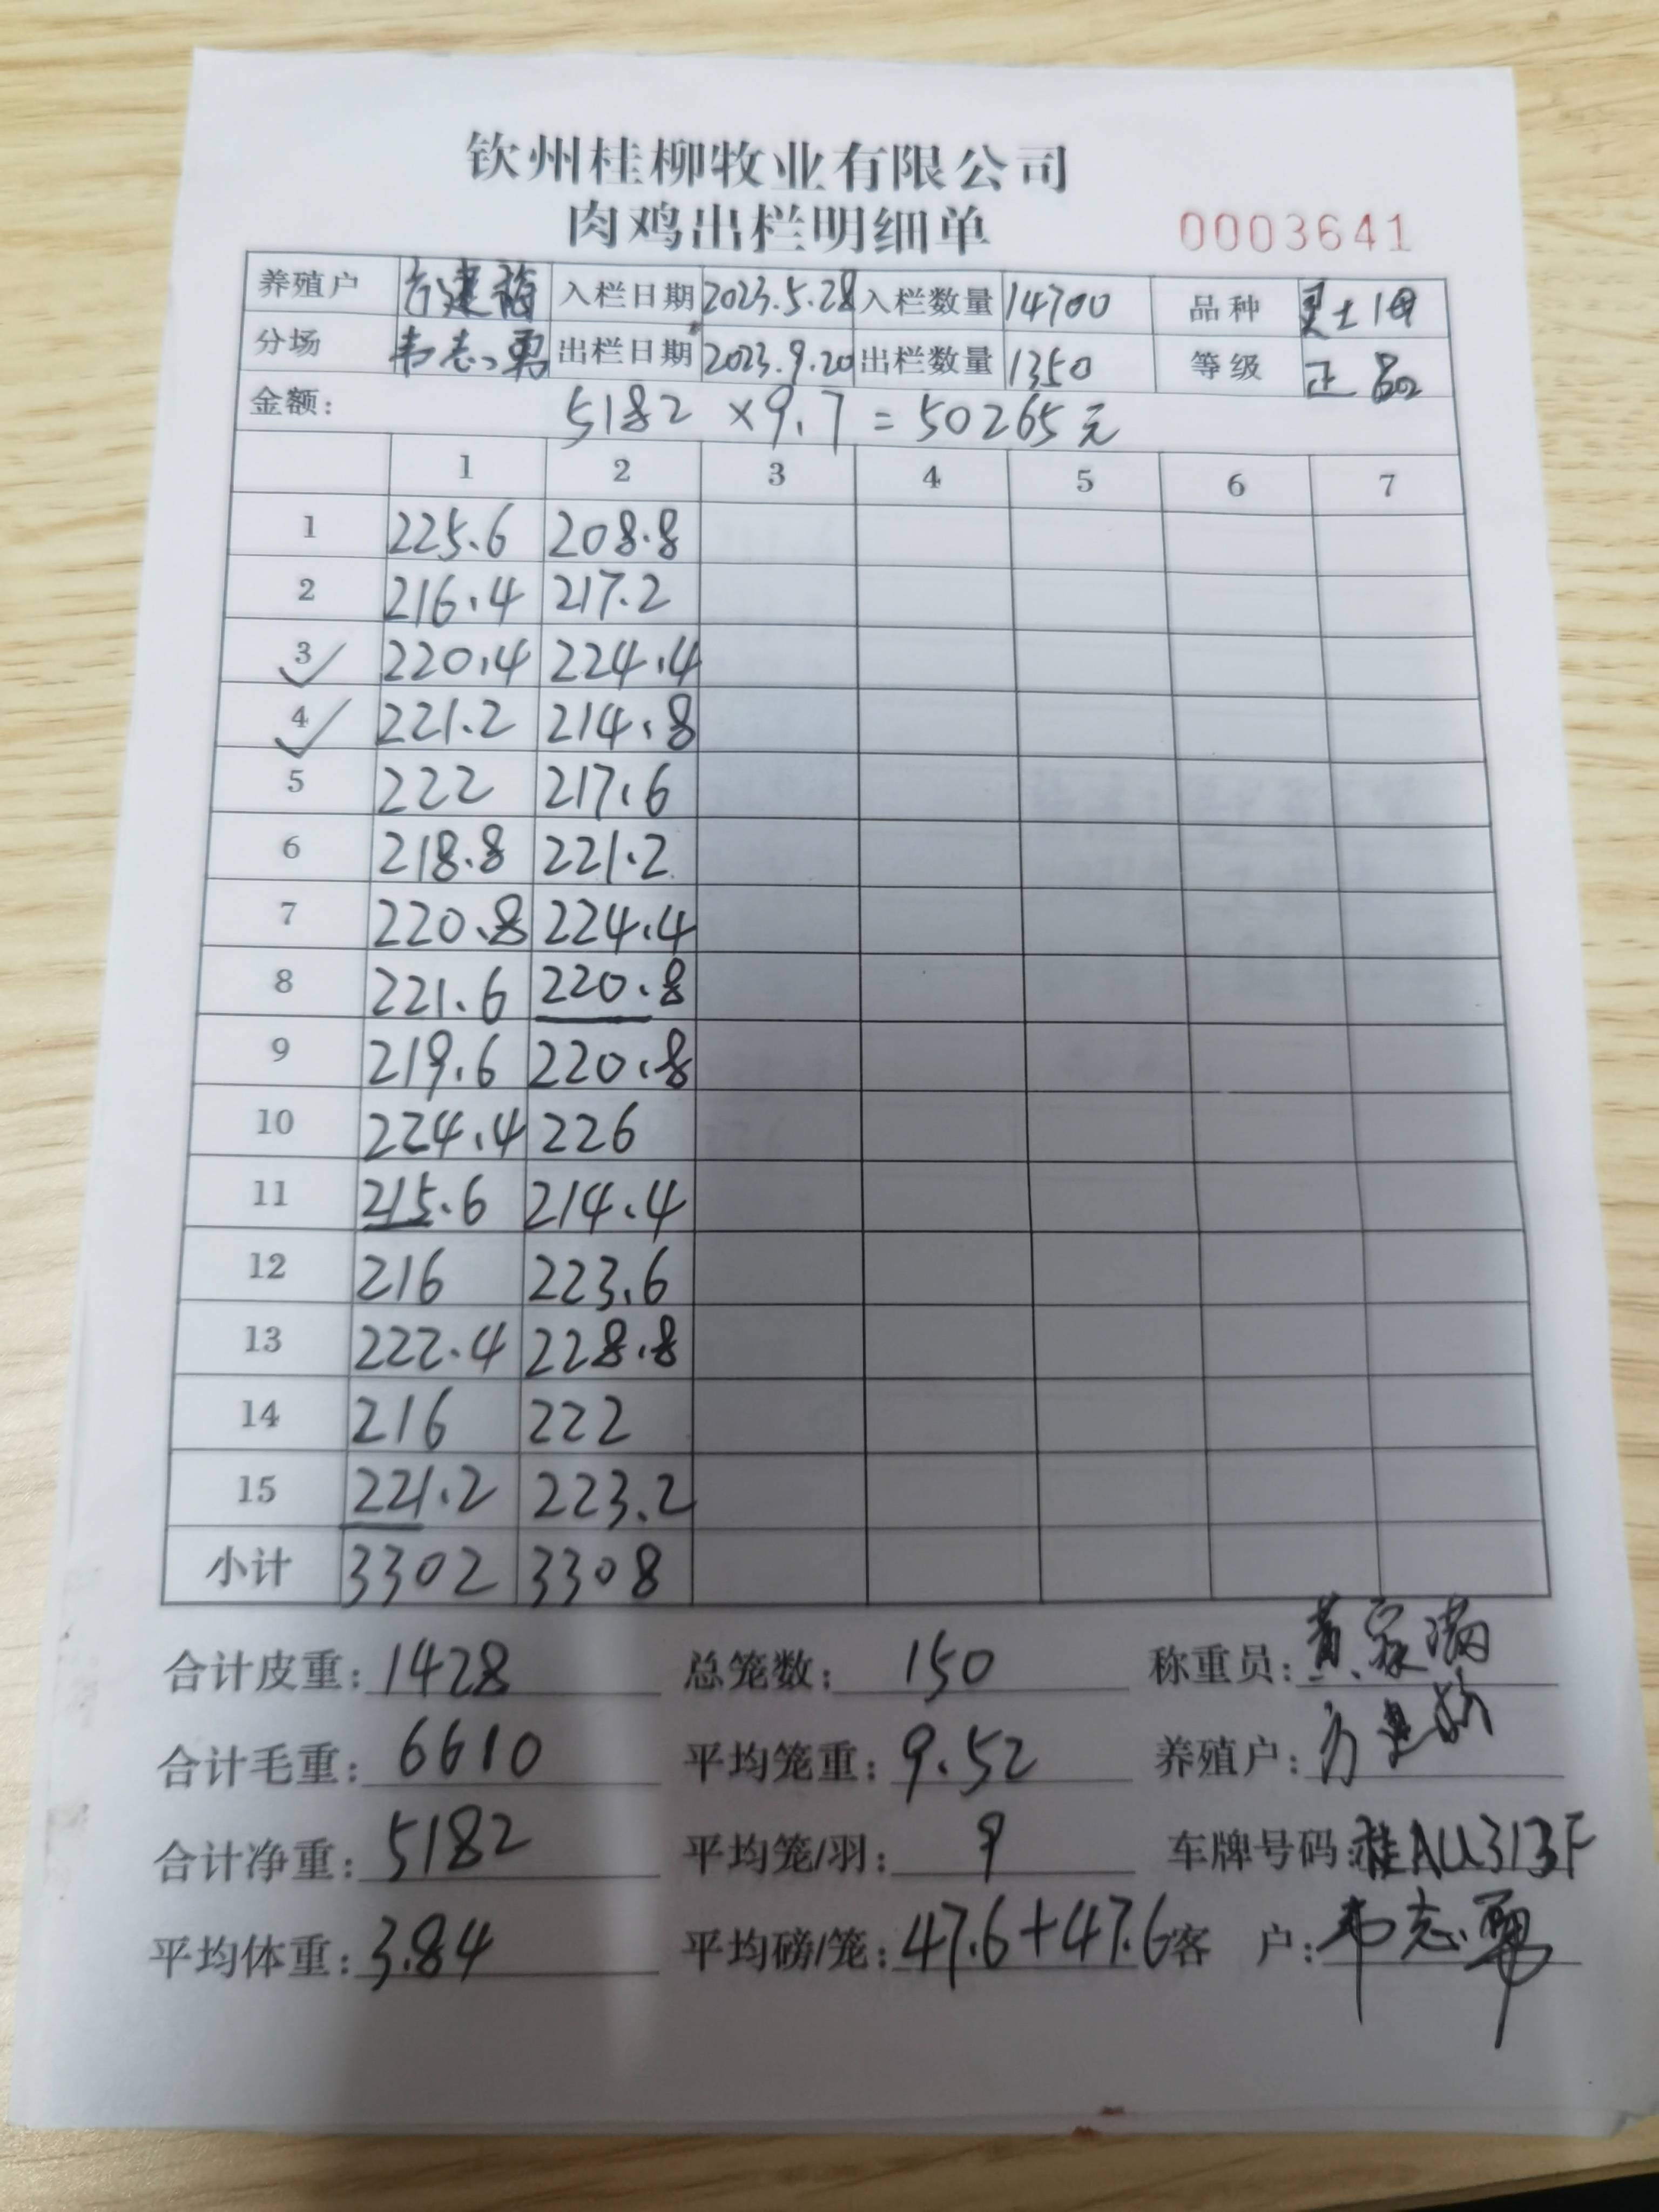 钦州桂柳牧业有限公司
肉鸡出栏明细单 0003641
养殖户 方建 入栏日期 2023.5.28 入栏数量 14700 品种 土1母
分场 韦志勇 出栏日期 2023.9.20 出栏数量 1350 等级 正品
金额: 5182 ×9.7 = 50265元
1 2 3 4 5 6 7
1 225.6 208.8
2 216.4 217.2
3 220.4 224.4
4 221.2 214.8
5 222 217.6
6 218.8 221.2
7 220.8 224.4
8 221.6 220.8
9 219.6 220.8
10 224.4 226
11 215.6 214.4
12 216 223.6
13 222.4 228.8
14 216 222
15 221.2 223.2
小计 3302 3308
合计皮重: 1428 总笼数: 150 称重员: 黄家满
合计毛重: 6610 平均笼重: 9.52 养殖户: 方建
合计净重: 5182 平均笼/羽: 9 车牌号码: 桂AU313F
平均体重: 3.84 平均磅/笼: 47.6+47.6 客 户: 韦志勇